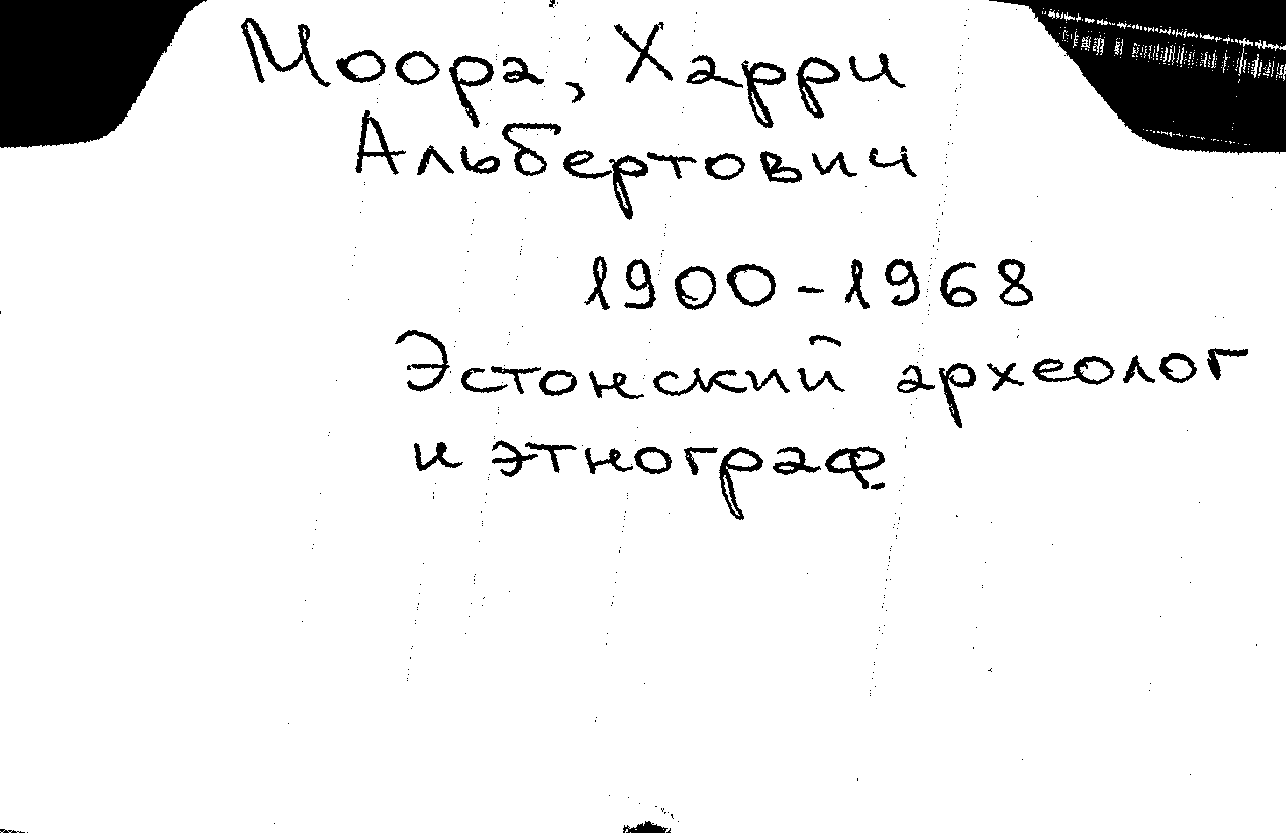 Моора, Харри
Альбертович
1900-1968
Эстонский археолог
и этнограф